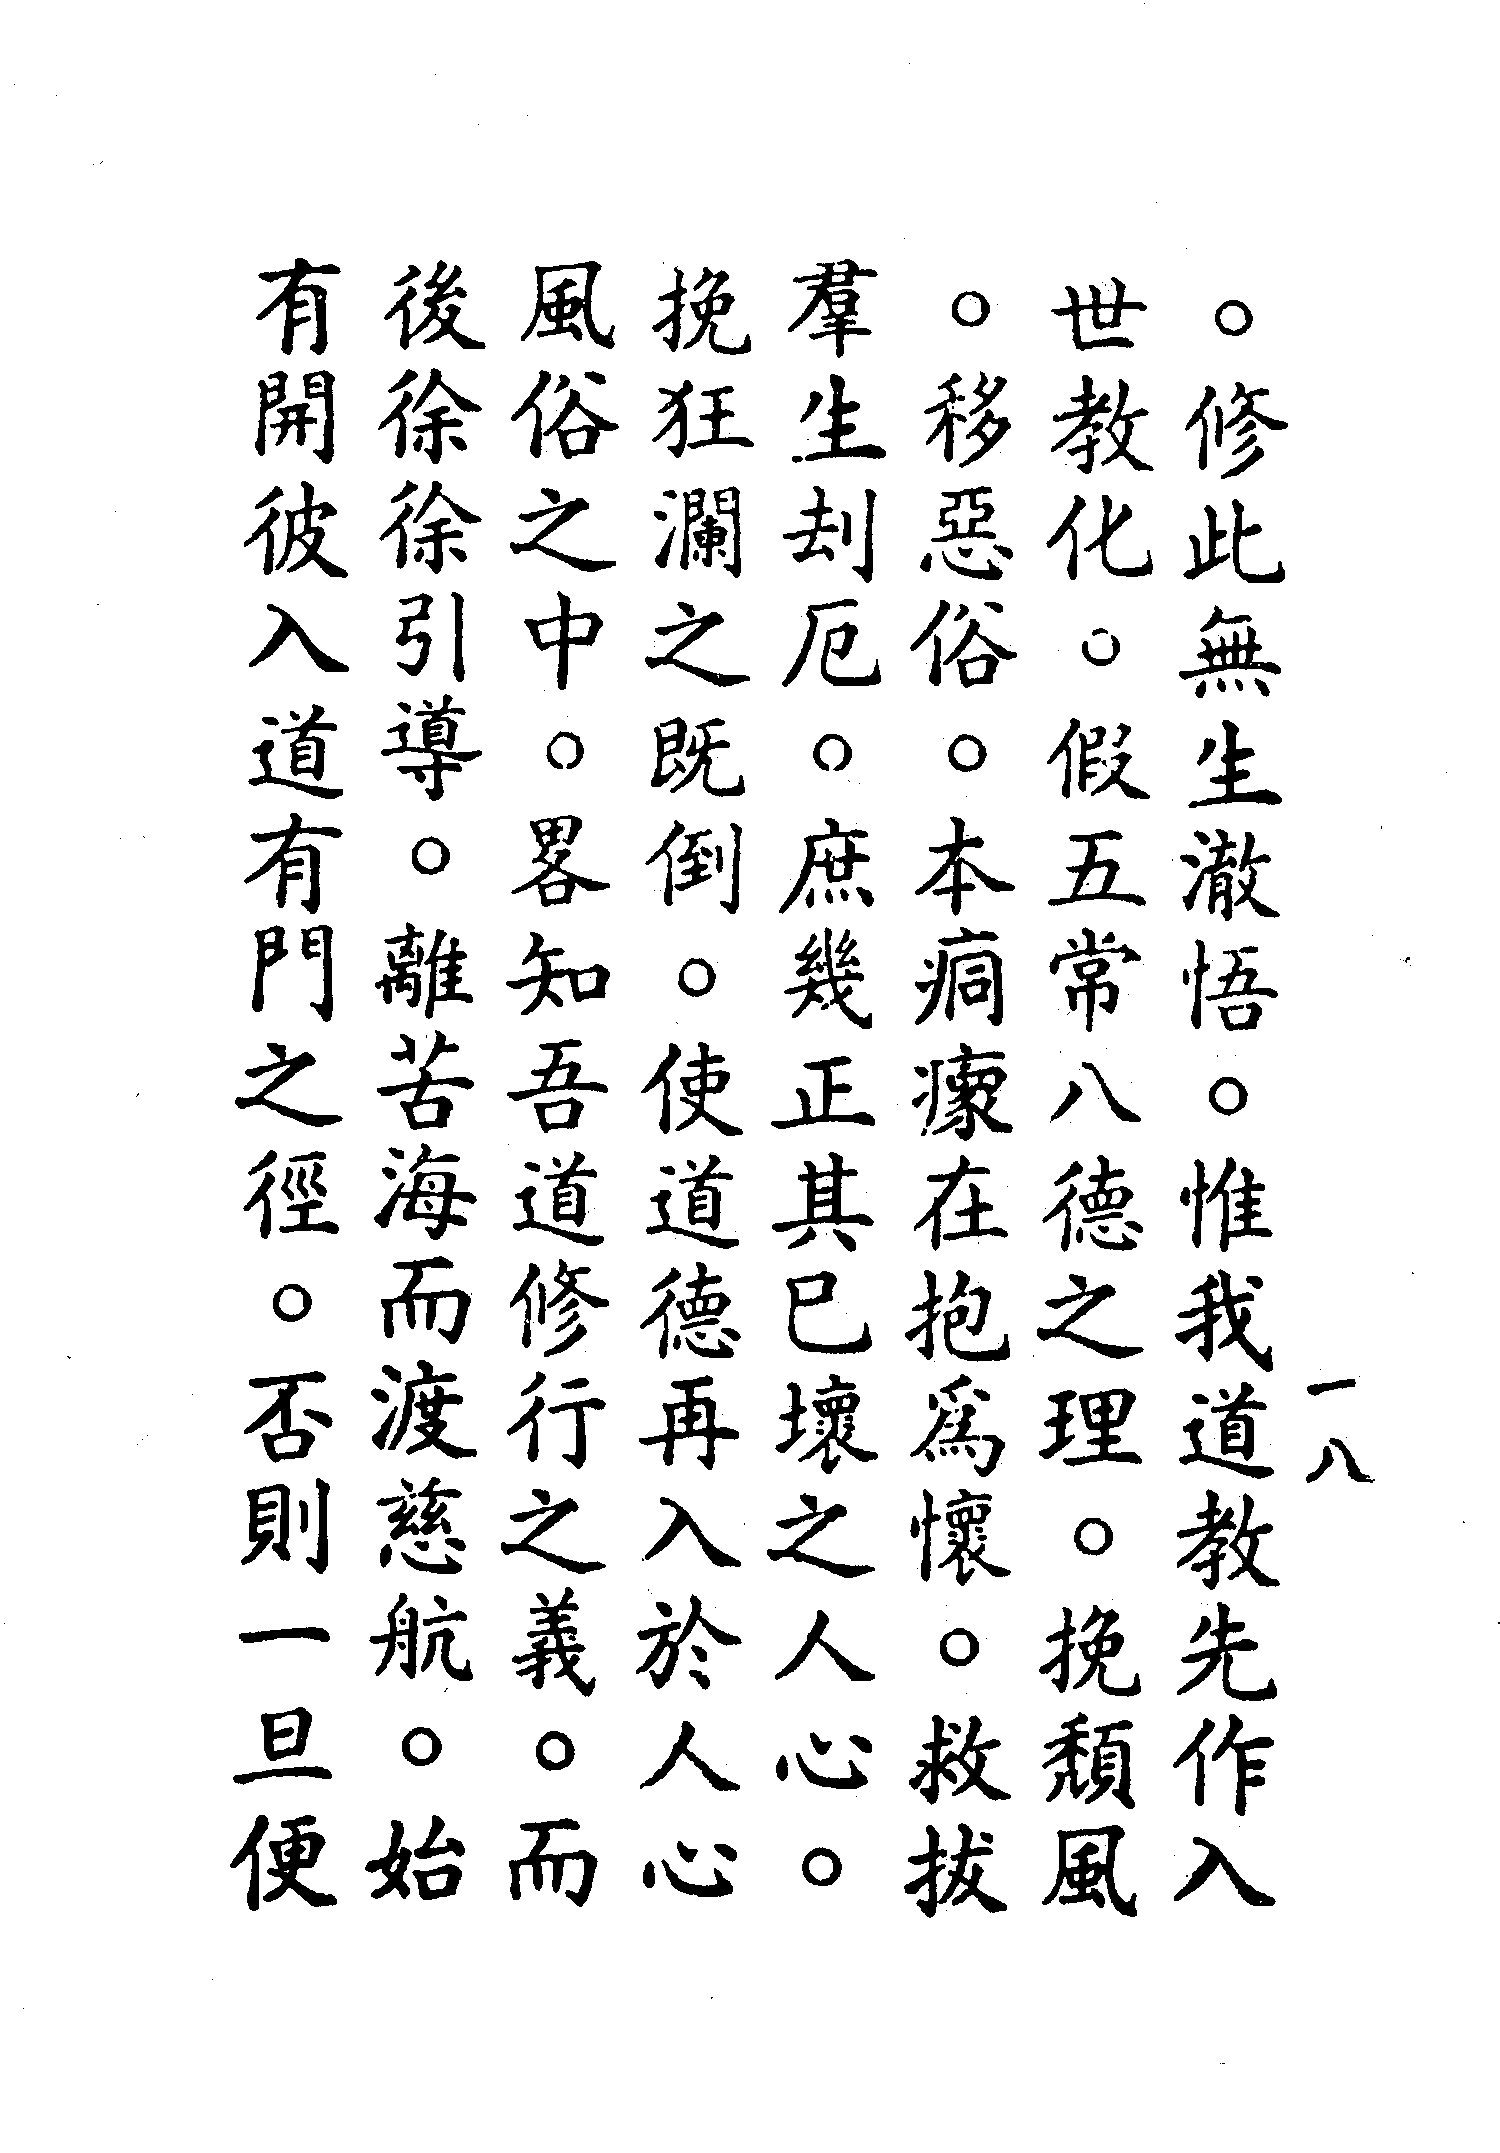 一八
。修此無生澈悟。惟我道教先作入
世教化。假五常八德之理。挽頹風
。移惡俗。本痌瘝在抱爲懷。救拔
羣生刦厄。庶幾正其已壞之人心。
挽狂瀾之既倒。使道德再入於人心
風俗之中。畧知吾道修行之義。而
後徐徐引導。離苦海而渡慈航。始
有開彼入道有門之徑。否則一旦便